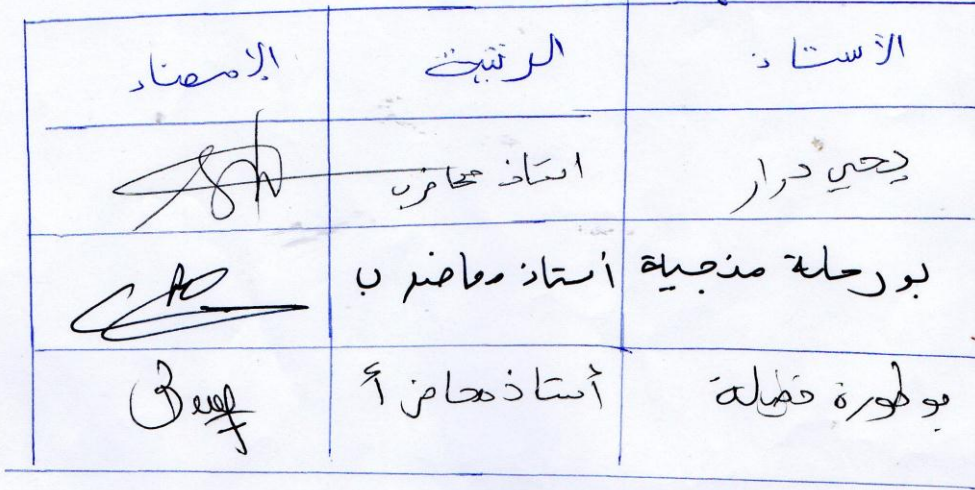 الأستاذ الرتبة الإمضاء
يحيى درار استاذ محاضر ب
أستاذ محاضر ب
بوطورة فضيلة أستاذ محاضر أ